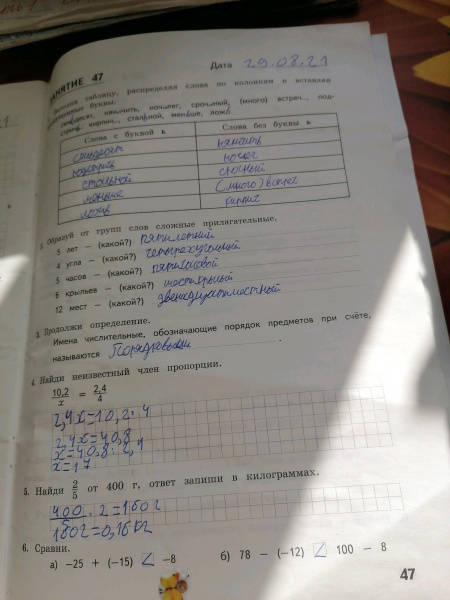 ЗАНЯТИЕ 47
Дата 29.08.21
таблицу, распределяя слова по колонкам и вставляя
буквы.
нянчить, ночлег, срочный, (много) встреч.., под-
кирпич.., стальной, меньше, ложь
Слова с буквой ь
Слова без буквы ь
нянчить
ночлег
стальной
срочный
меньше
(много) встреч
ложь
кирпич
2. Образуй от групп слов сложные прилагательные.
5 лет — (какой?) пятилетний
4 угла — (какой?) четырехугольный
5 часов — (какой?) пятичасовой
6 крыльев — (какой?) шестикрылый
12 мест — (какой?) двенадцатиместной
3. Продолжи определение.
Имена числительные, обозначающие порядок предметов при счёте,
называются Порядковыми .
4. Найди неизвестный член пропорции.
10,2/x = 2,4/4
2,4x=10,2·4
2,4x=40,8
x=40,8:2,4
x=17
5. Найди 2/5 от 400 г, ответ запиши в килограммах.
400/5 · 2=160г
160г=0,16кг
6. Сравни.
а) −25 + (−15) < −8
б) 78 − (−12) < 100 − 8
47